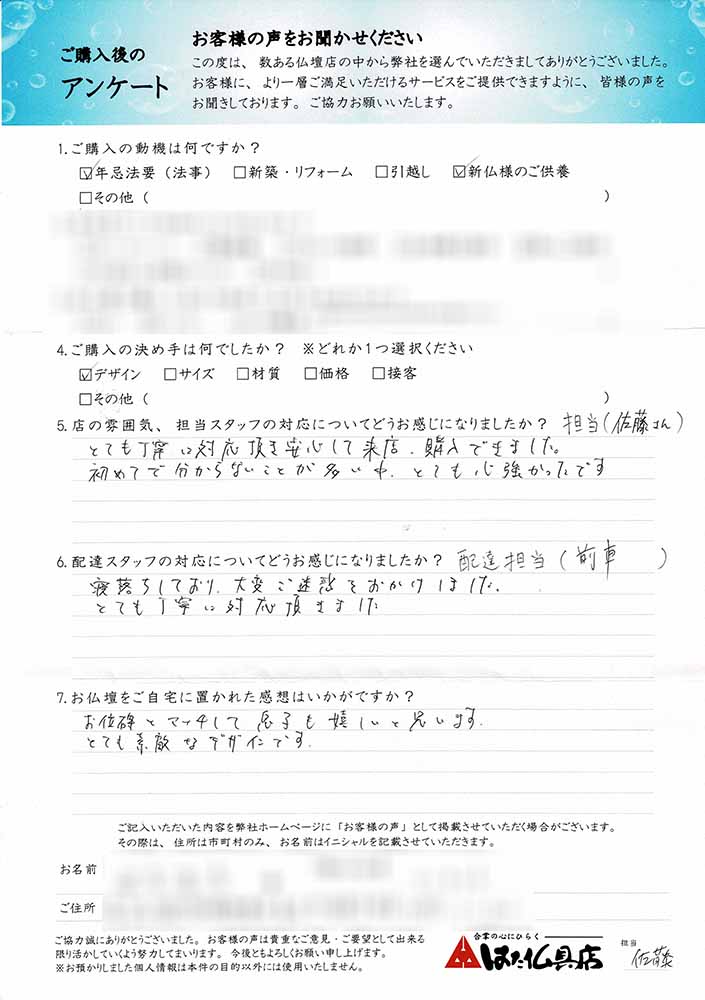 ご購入後の
アンケート
お客様の声をお聞かせください
この度は、数ある仏壇店の中から弊社を選んでいただきましてありがとうございました。
お客様に、より一層ご満足いただけるサービスをご提供できますように、皆様の声を
お聞きしております。ご協力お願いいたします。
1.ご購入の動機は何ですか？
☑年忌法要（法事） □新築・リフォーム □引越し ☑新仏様のご供養
□その他（ ）
4.ご購入の決め手は何でしたか？ ※どれか1つ選択ください
☑デザイン □サイズ □材質 □価格 □接客
□その他（ ）
5.店の雰囲気、担当スタッフの対応についてどうお感じになりましたか？ 担当（佐藤さん）
とても丁寧に対応頂き安心して来店、購入できました。
初めてで分からないことが多い中、とても心強かったです
6.配達スタッフの対応についてどうお感じになりましたか？ 配達担当（前車 ）
寝落ちしており、大変ご迷惑をおかけしました。
とても丁寧に対応頂きました
7.お仏壇をご自宅に置かれた感想はいかがですか？
お位牌とマッチして息子も嬉しいと思います。
とても素敵なデザインです。
ご記入いただいた内容を弊社ホームページに「お客様の声」として掲載させていただく場合がございます。
その際は、住所は市町村のみ、お名前はイニシャルを記載させていただきます。
お名前
ご住所
ご協力誠にありがとうございました。お客様の声は貴重なご意見・ご要望として出来る
限り活かしていくよう努力してまいります。今後ともよろしくお願い申し上げます。
※お預かりしました個人情報は本件の目的以外には使用いたしません。
合掌の心にひらく
はた仏具店
担当
佐藤